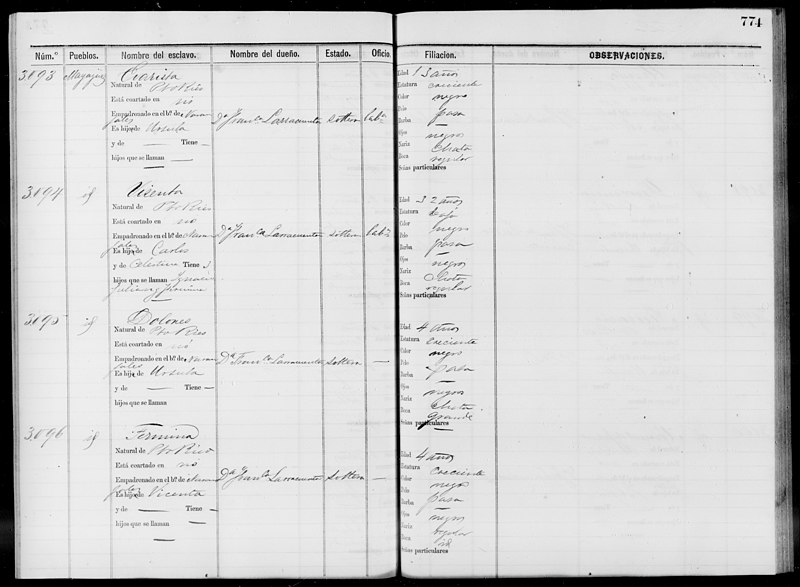 774
Núm.º Pueblos. Nombre del esclavo. Nombre del dueño. Estado. Oficio. Filiacion. OBSERVACIONES.
3093 Mayagüez Evarista
Natural de Pto Rico
Está coartado en no
Empadronado en el bº. de Naran
jales
Es hijo de Ursula
y de — Tiene —
hijos que se llaman —
Dª Francª Larracuenta soltera labª
Edad 13 años
Estatura creciente
Color negro
Pelo pasa
Barba —
Ojos negros
Nariz chata
Boca regular
Señas particulares
3094 id Vicenta
Natural de Pto Rico
Está coartado en no
Empadronado en el bº. de Naran
jales
Es hijo de Carlos
y de Celestina Tiene 3
hijos que se llaman Ignacio
Julian y Fermina
Dª Francª Larracuenta soltera labª
Edad 32 años
Estatura baja
Color negro
Pelo pasa
Barba —
Ojos negros
Nariz chata
Boca regular
Señas particulares
3095 id Dolores
Natural de Pto Rico
Está coartado en nó
Empadronado en el bº. de Naran
jales
Es hijo de Ursula
y de — Tiene —
hijos que se llaman
Dª Francª Larracuenta soltera —
Edad 4 años
Estatura creciente
Color negro
Pelo pasa
Barba —
Ojos negros
Nariz chata
Boca grande
Señas particulares
3096 id Fermina
Natural de Pto Rico
Está coartado en no
Empadronado en el bº. de Naran
jales
Es hijo de Vicenta
y de — Tiene —
hijos que se llaman —
Dª Francª Larracuenta soltera —
Edad 4 años
Estatura creciente
Color negro
Pelo pasa
Barba —
Ojos negros
Nariz regular
Boca id
Señas particulares